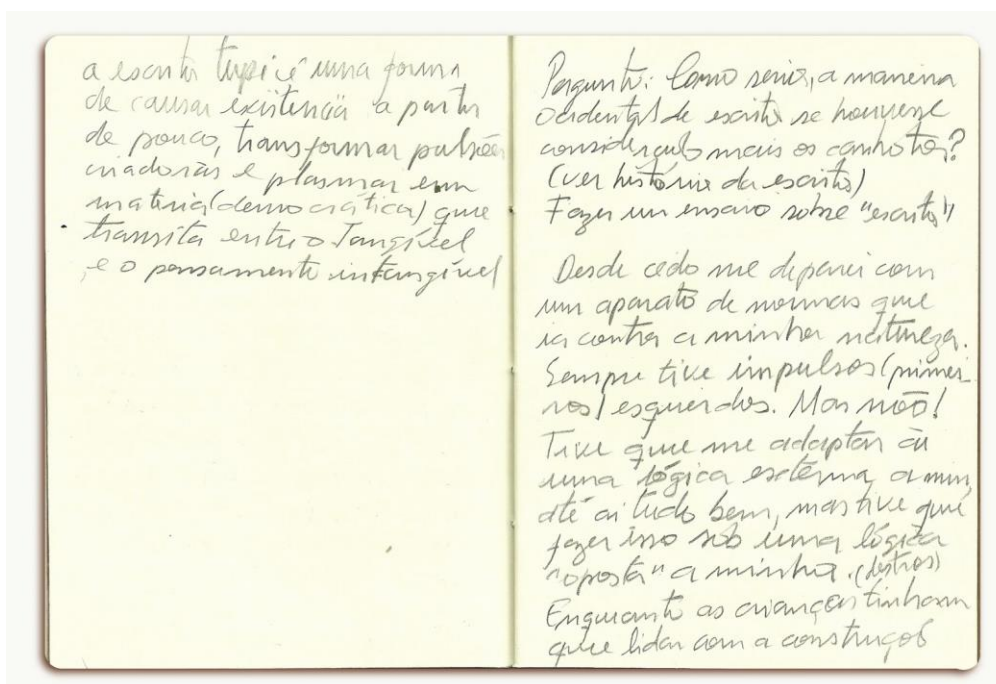 a escrita tupi é uma forma
de causar existência a partir
de pouco, transformar pulsões
criadoras e plasmar em
matéria (democrática) que
transita entre o Tangível
e o pensamento intangível
Pergunto: Como seria, a maneira
ocidental de escrita se houvesse
considerado mais os canhotos?
(ver história da escrita)
Fazer um ensaio sobre "escrita"
Desde cedo me deparei com
um aparato de normas que
ia contra a minha natureza.
Sempre tive impulsos (primei-
ros) esquerdos. Mas não!
Tive que me adaptar à
uma lógica externa a mim,
até aí tudo bem, mas tive que
fazer isso sob uma lógica
"oposta" a minha. (destros)
Enquanto as crianças tinham
que lidar com a